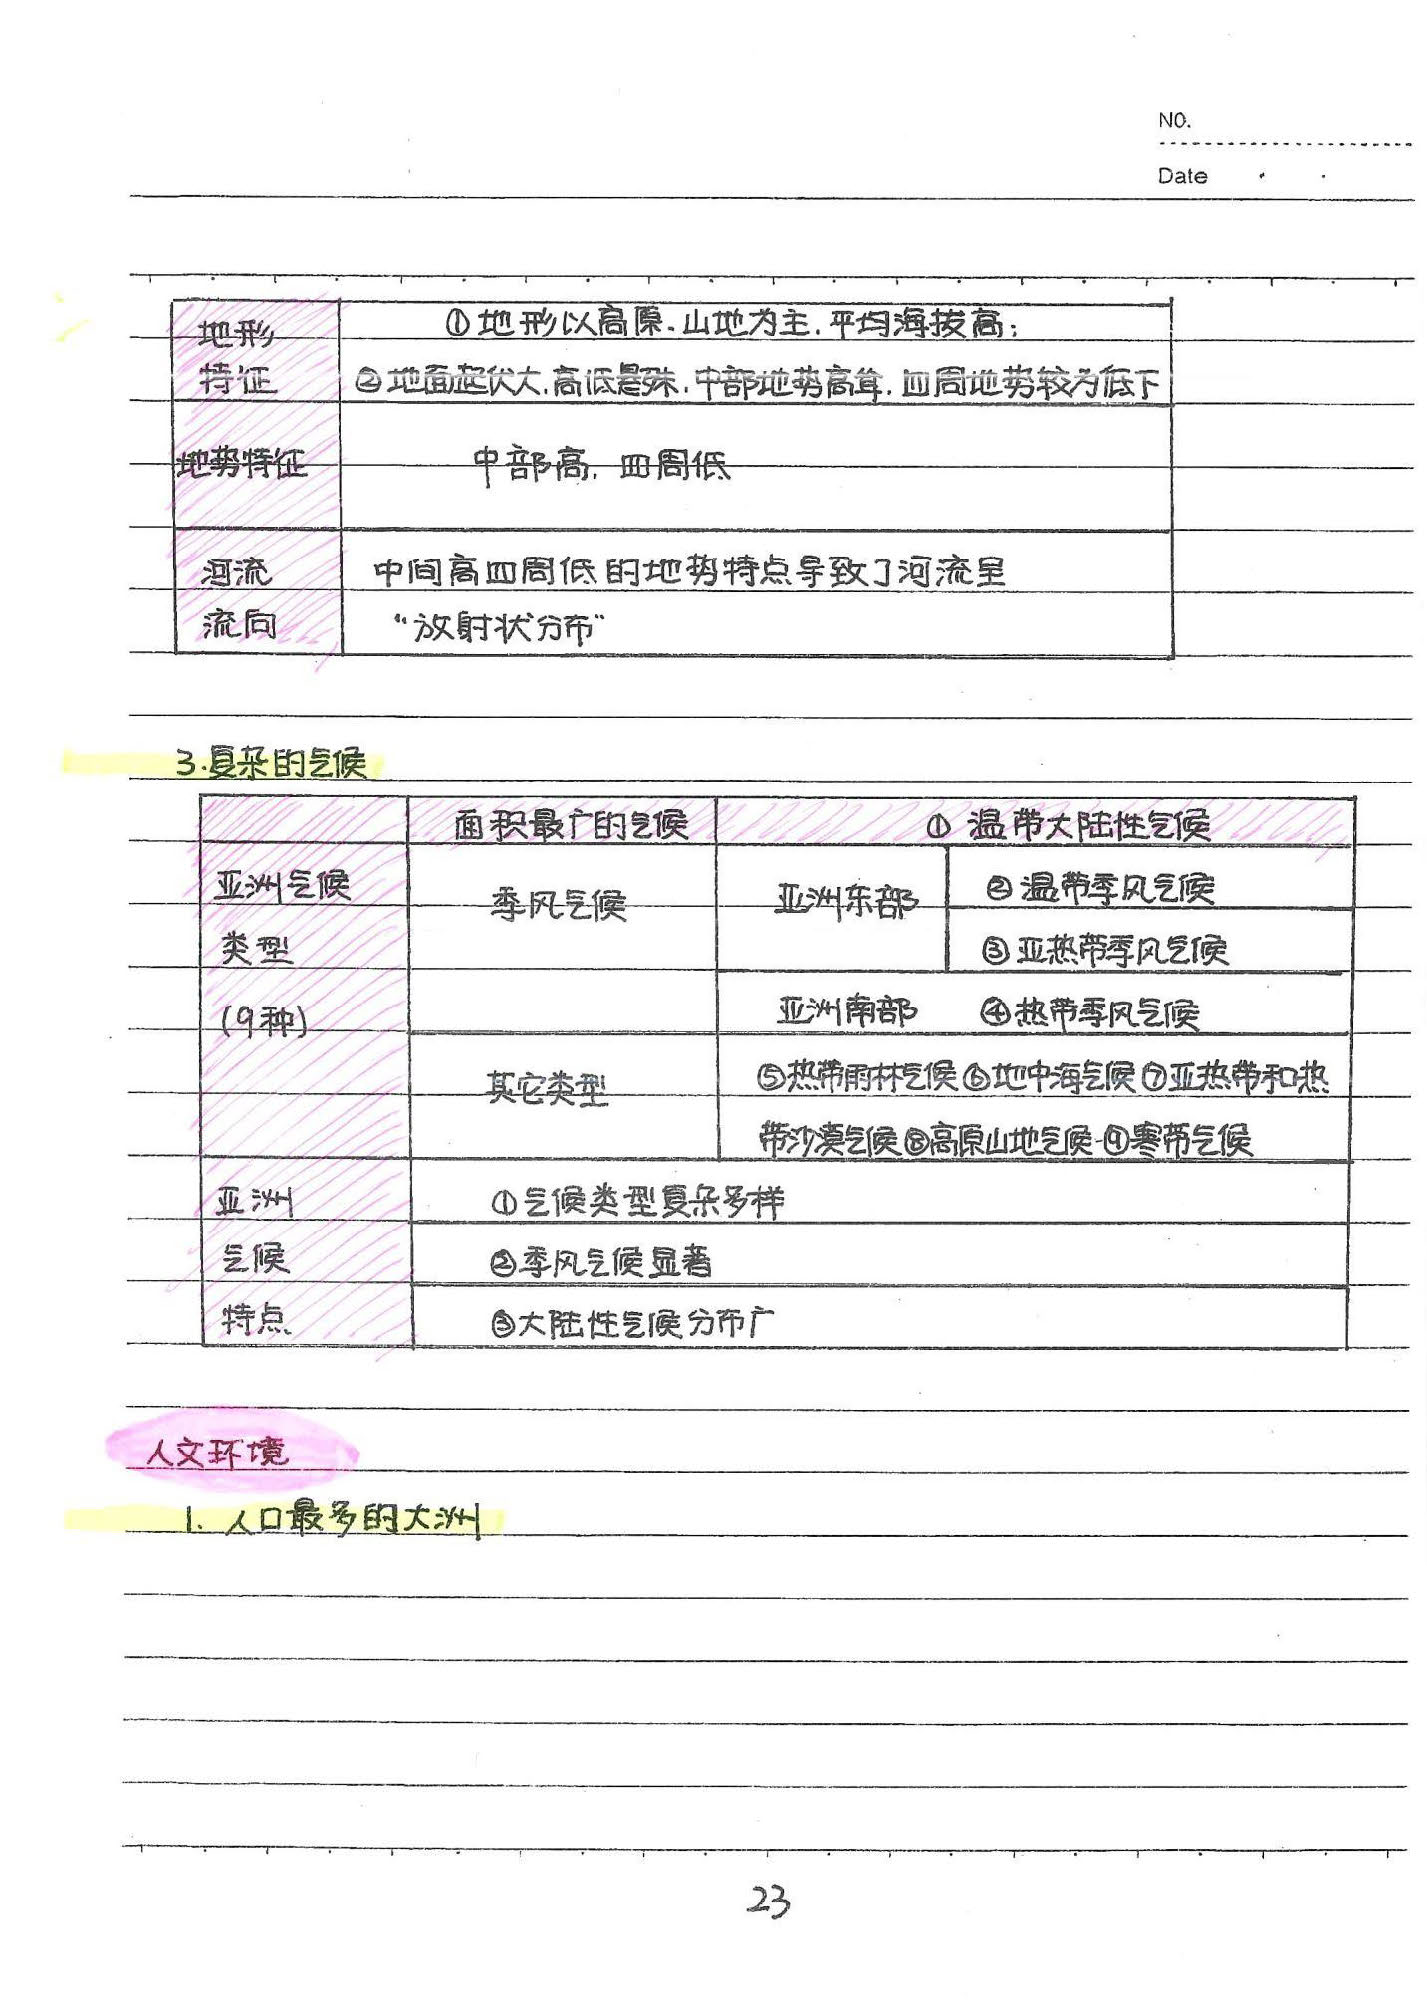 NO.
Date
地形
特征
①地形以高原、山地为主,平均海拔高;
②地面起伏大,高低悬殊,中部地势高耸,四周地势较为低下
地势特征
中部高,四周低
河流
流向
中间高四周低的地势特点导致了河流呈
“放射状分布”
3.复杂的气候
面积最广的气候
① 温带大陆性气候
亚洲气候
类型
(9种)
季风气候
亚洲东部
②温带季风气候
③亚热带季风气候
亚洲南部
④热带季风气候
其它类型
⑤热带雨林气候⑥地中海气候⑦亚热带和热
带沙漠气候⑧高原山地气候 ⑨寒带气候
亚洲
气候
特点
①气候类型复杂多样
②季风气候显著
③大陆性气候分布广
人文环境
1. 人口最多的大洲
23